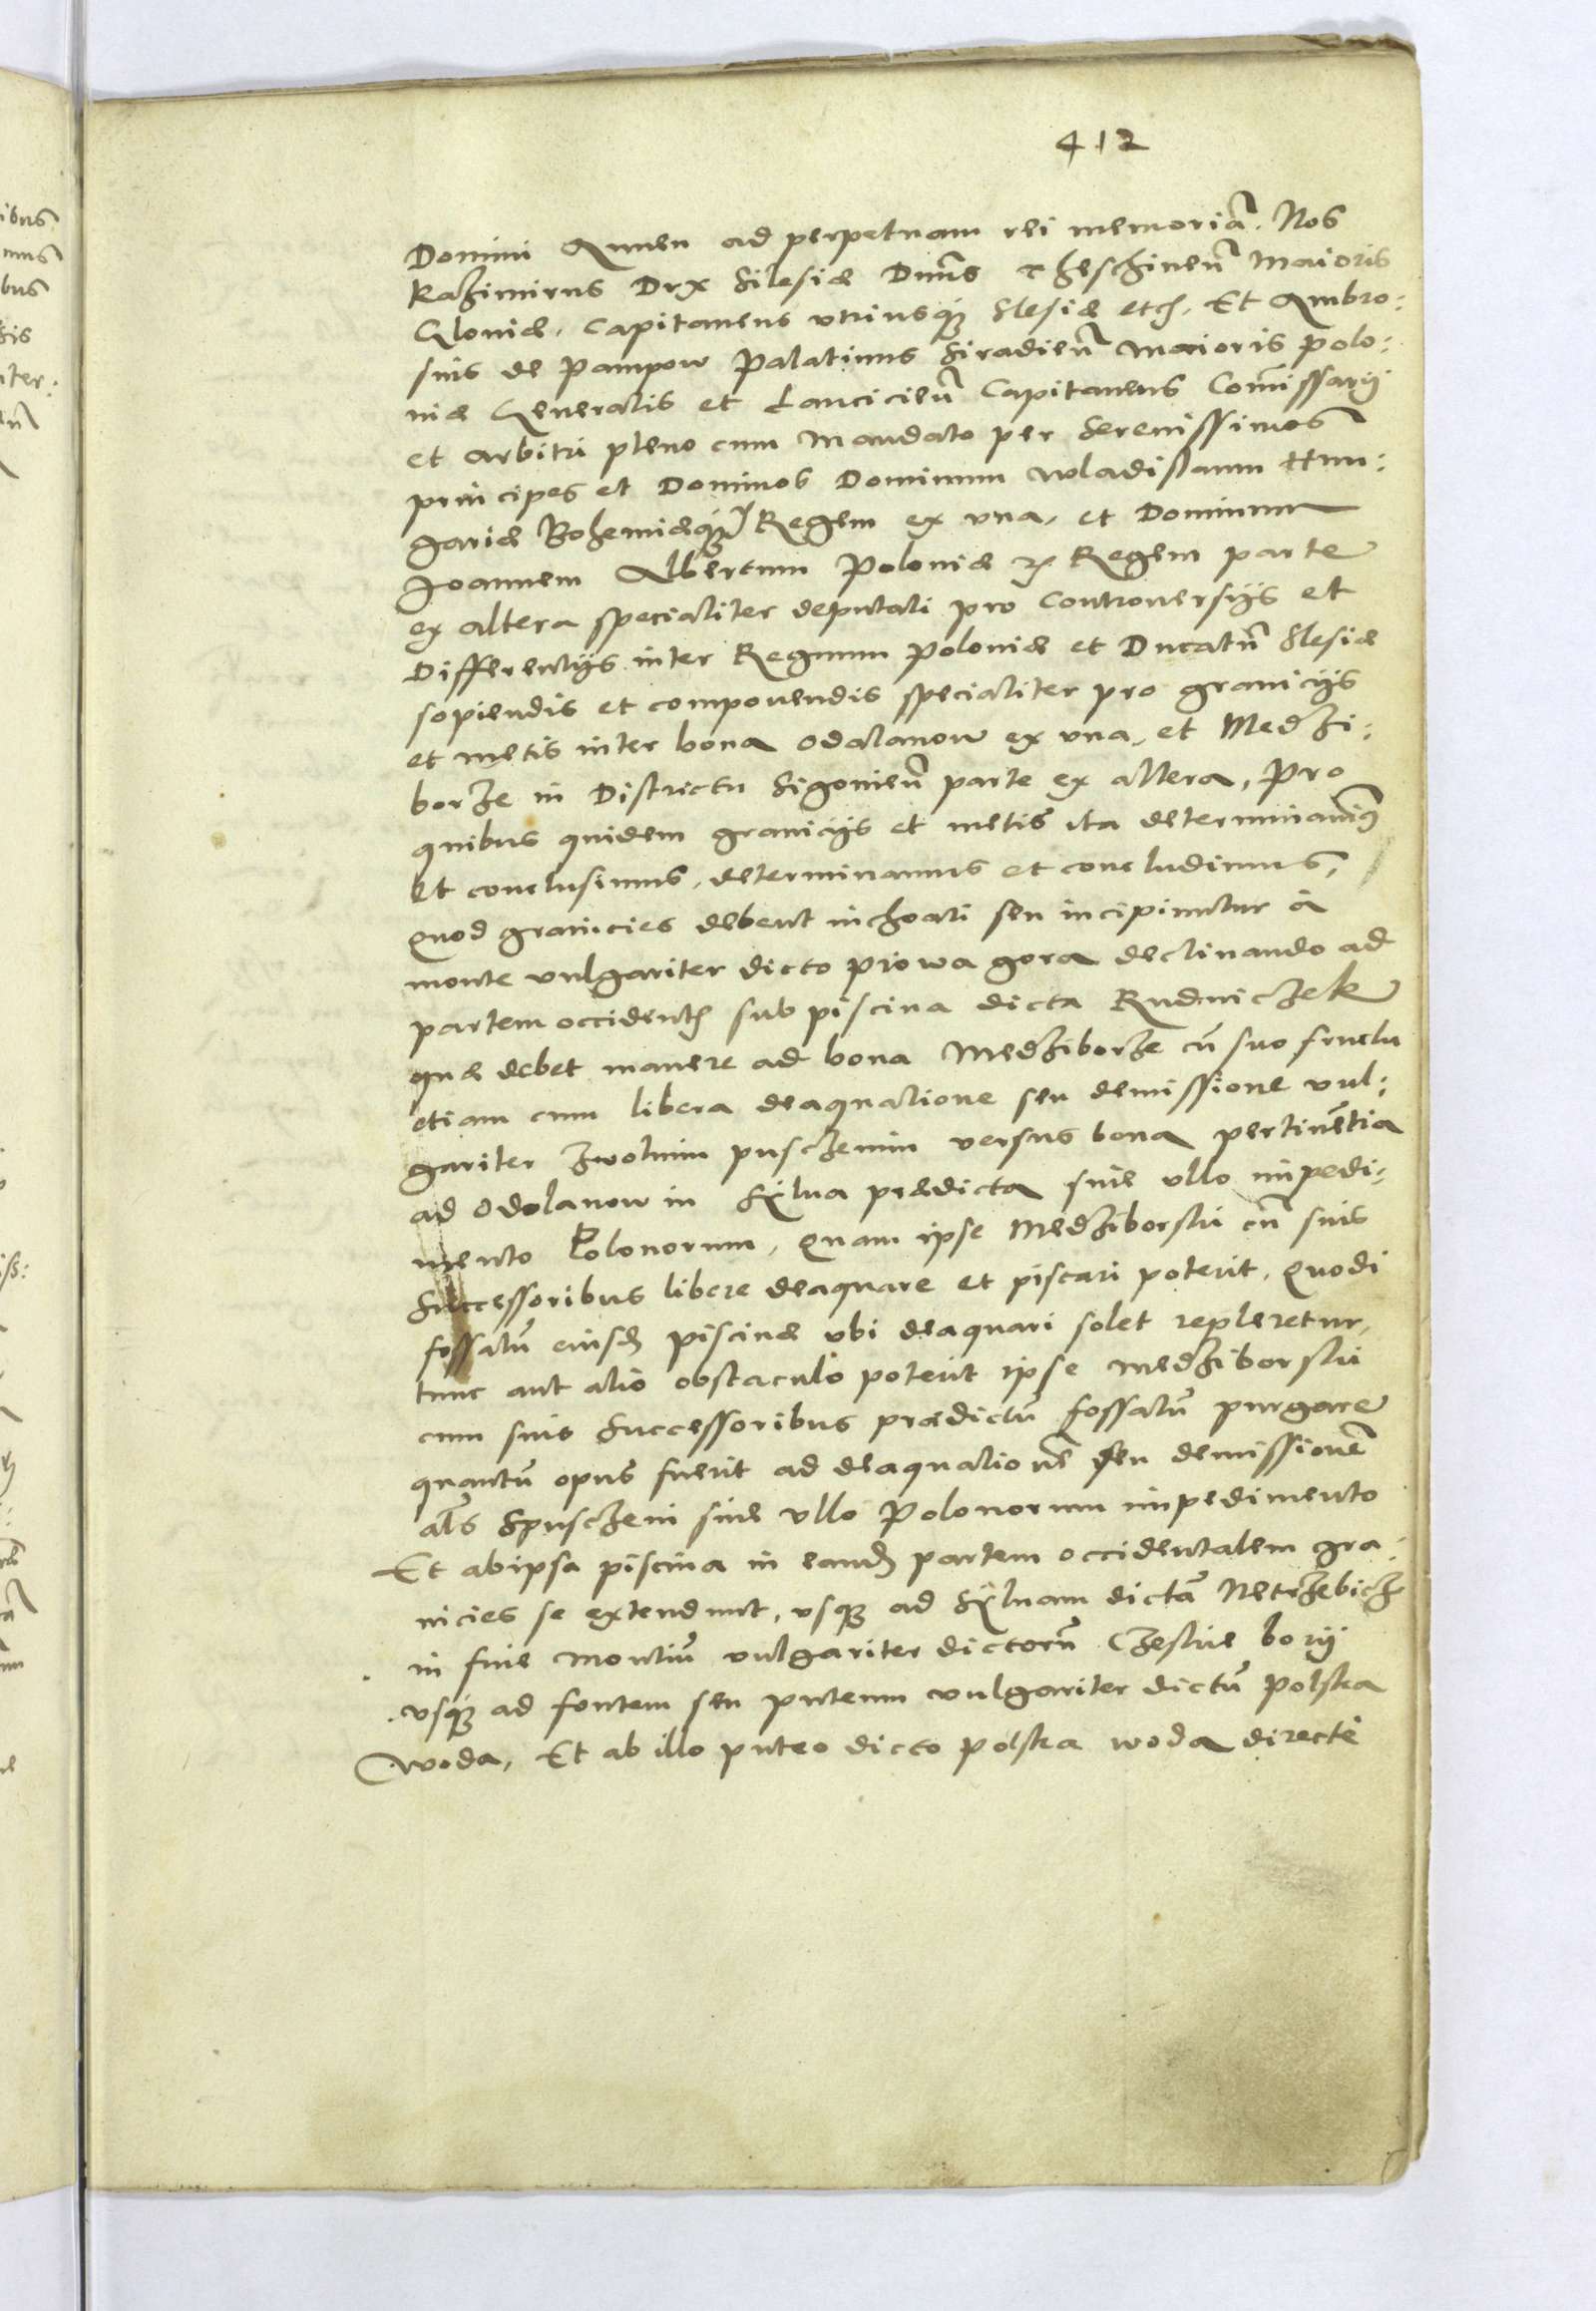 412
Domini Amen ad perpetuam rei memoriā. Nos
Kazimirus Dux Silesiæ Dnus Theschineñ Maioris
Gloniæ, Capitaneus utriusq; Slesiæ etc. Et Ambro:
sius de Pampow Palatinus Siradieñ Maioris Polo:
niæ Generalis et Lancicieñ Capitaneus Comissarij
et arbitri pleno cum mandato per Serenissimos
principes et Dominos Dominum Wladislaum Hun:
gariæ Bohemiæq; Regem ex una, et Dominum
Joannem Albertum Poloniæ Regem parte
ex altera specialiter deputati pro Controuersijs et
Differentijs inter Regnum Poloniæ et Ducatū Slesiæ
sopiendis et componendis specialiter pro granicijs
et metis inter bona Odalanow ex una, et Medzi:
borze in Districtu Sigonieñ parte ex altera, Pro
quibus quidem granicijs et metis ita determinauim9
Et conclusimus, determinamus et concludimus,
Quod granicies debent inchoari seu incipiuntur à
monte uulgariter dicto Piowa gora declinando ad
partem occidente sub piscina dicta Rudniczek
quæ debet manere ad bona Medziborze cū suo fructu
etiam cum libera deaquatione seu demissione uul:
gariter zwolnim puschenim uersus bona pertinētia
ad Odolanow in Sylua prædicta sine ullo impedi:
mento Polonorum, Quam ipse Medziborski cū suis
Successoribus libere deaquare et piscari poterit, Quodi
fossatū eiusd piscinæ ubi deaquari solet repleretur,
tunc aut alio obstaculo poterit ipse Medziborski
cum suis Successoribus prædictū fossatū purgare
quantū opus fuerit ad deaquationē seu demissionē
als Spuscheni sine ullo Polonorum impedimento
Et ab ipsa piscina in eand partem occidentalem gra:
nicies se extendunt, usq; ad Syluam dictā Netrzebicz
in fine montiū uulgariter dictorū Czeskie borij
usq; ad fontem seu puteum uulgariter dictū Polska
woda, Et ab illo puteo dicto Polska woda directè